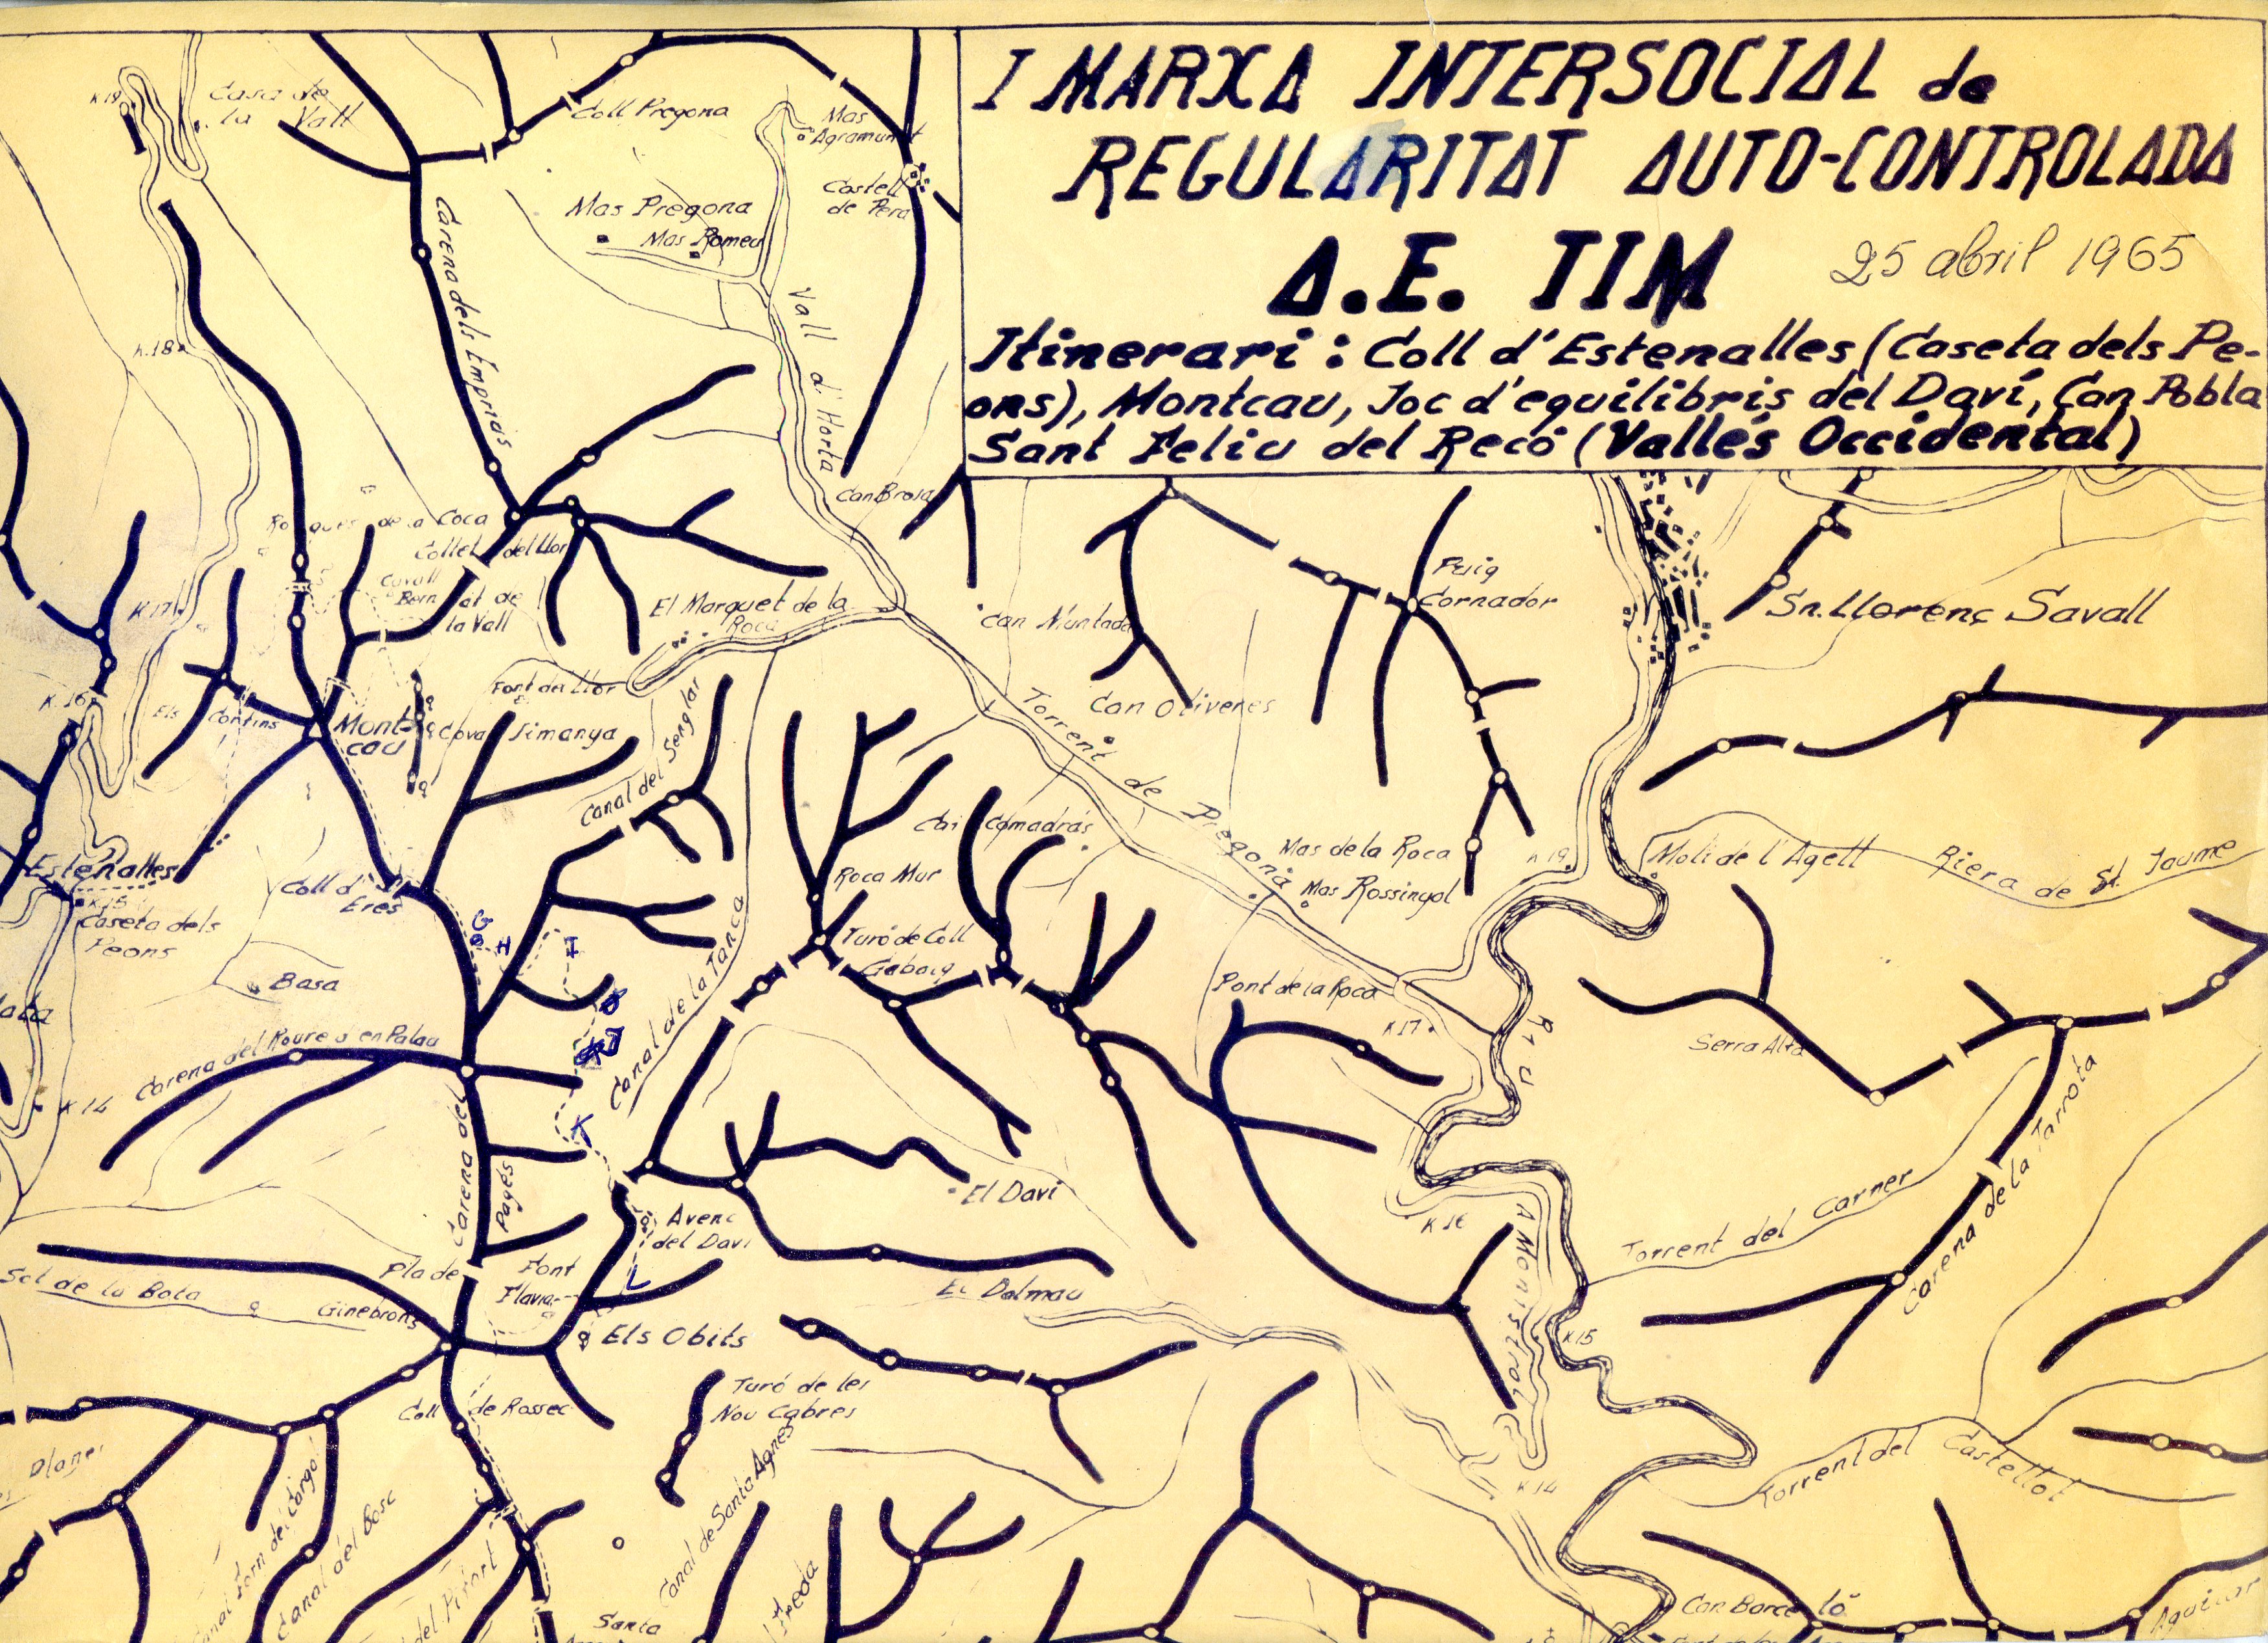 I MARXA INTERSOCIAL de
REGULARITAT AUTO-CONTROLADA
A.E. TIM
25 abril 1965
Itinerari: Coll d'Estenalles (Caseta dels Pe-
ons), Montcau, Joc d'equilibris del Daví, Can Pobla
Sant Feliu del Recó (Vallés Occidental)
K 19
Casa de
la Vall
Coll Pregona
Mas
Agramunt
Castell
de Pera
Mas Pregona
Mas Romeu
Carena dels Emprius
Vall d'Horta
K.18
Can Brosa
Roques de la Coca
Collet del Llor
Cavall
Bernat de
la Vall
El Marquet de la
Roca
K 17
Can Muntada
Puig
Cornador
Sn. Llorenç Savall
K.16
Els Cortins
Mont-
cau
Font del Llor
Cova Simanya
Canal del Senglar
Can Oliveres
Torrent de Pregona
Can Comadrás
Mas de la Roca
Mas Rossinyol
K 19
Molí de l'Agell
Riera de St. Jaume
Estenalles
K.15
Caseta dels
Peons
Coll d'
Eres
G
H
I
Roca Mur
Turó de Coll
Gabaig
Basa
Canal de la Tanca
Pont de la Roca
K 17
Riu
Serra Alta
Carena del Roure d'en Palau
K 14
K
Carena del
Pagès
El Daví
K 16
A Monistrol
Torrent del Carner
Carena de la Tarrota
Avenc
del Daví
L
Pla de
Ginebrons
Font
Flavia
Sot de la Bota
Els Obits
El Dalmau
K 15
Coll de Rossec
Turó de les
Nou Cabres
Canal de Santa Agnès
K 14
Torrent del Castellot
Canal Forn del Cargol
Canal del Bosc
Santa
Can Barceló